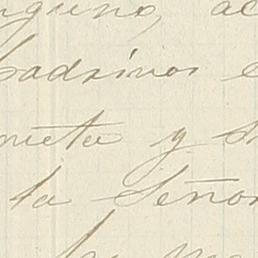 nguno, ac
padrinos e
nieta y s
la Señor